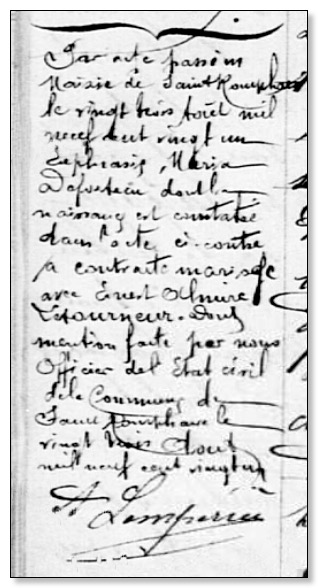 Par acte passé en
Mairie de Saint Romphaire
le vingt trois Août mil
neuf cent vingt un
Euphrasie, Maria
dont la
naissance est constatée
dans l'acte ci-contre
a contracté mariage
avec Ernest Almire
Letourneur. Dont
mention faite par nous
Officier de l'État civil
de la Commune de
Saint Romphaire le
vingt trois Août
mil neuf cent vingt un